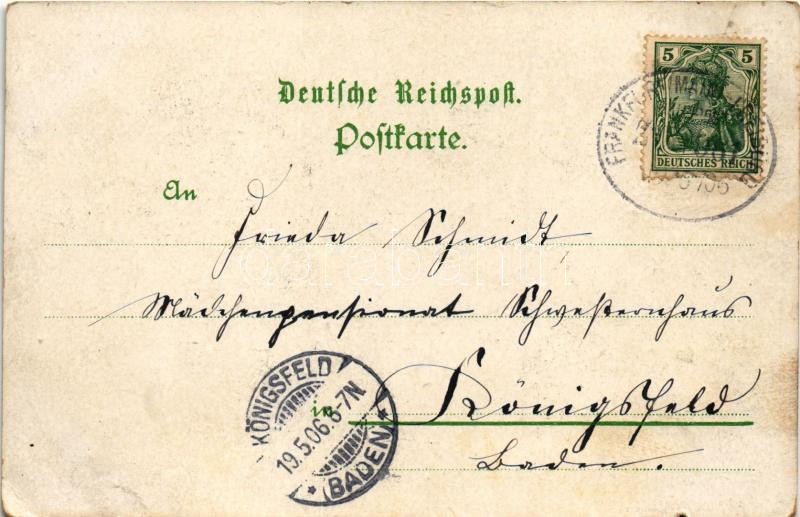 5 5
DEUTSCHES REICH
FRANKFURT (MAIN
Deutsche Reichspost.
Postkarte.
An
Frieda Schmidt,
Mädchenpensionat Schwesternhaus
in Königsfeld
Baden.
KÖNIGSFELD
19.5.06.6-7N
* (BADEN) *
darabanth